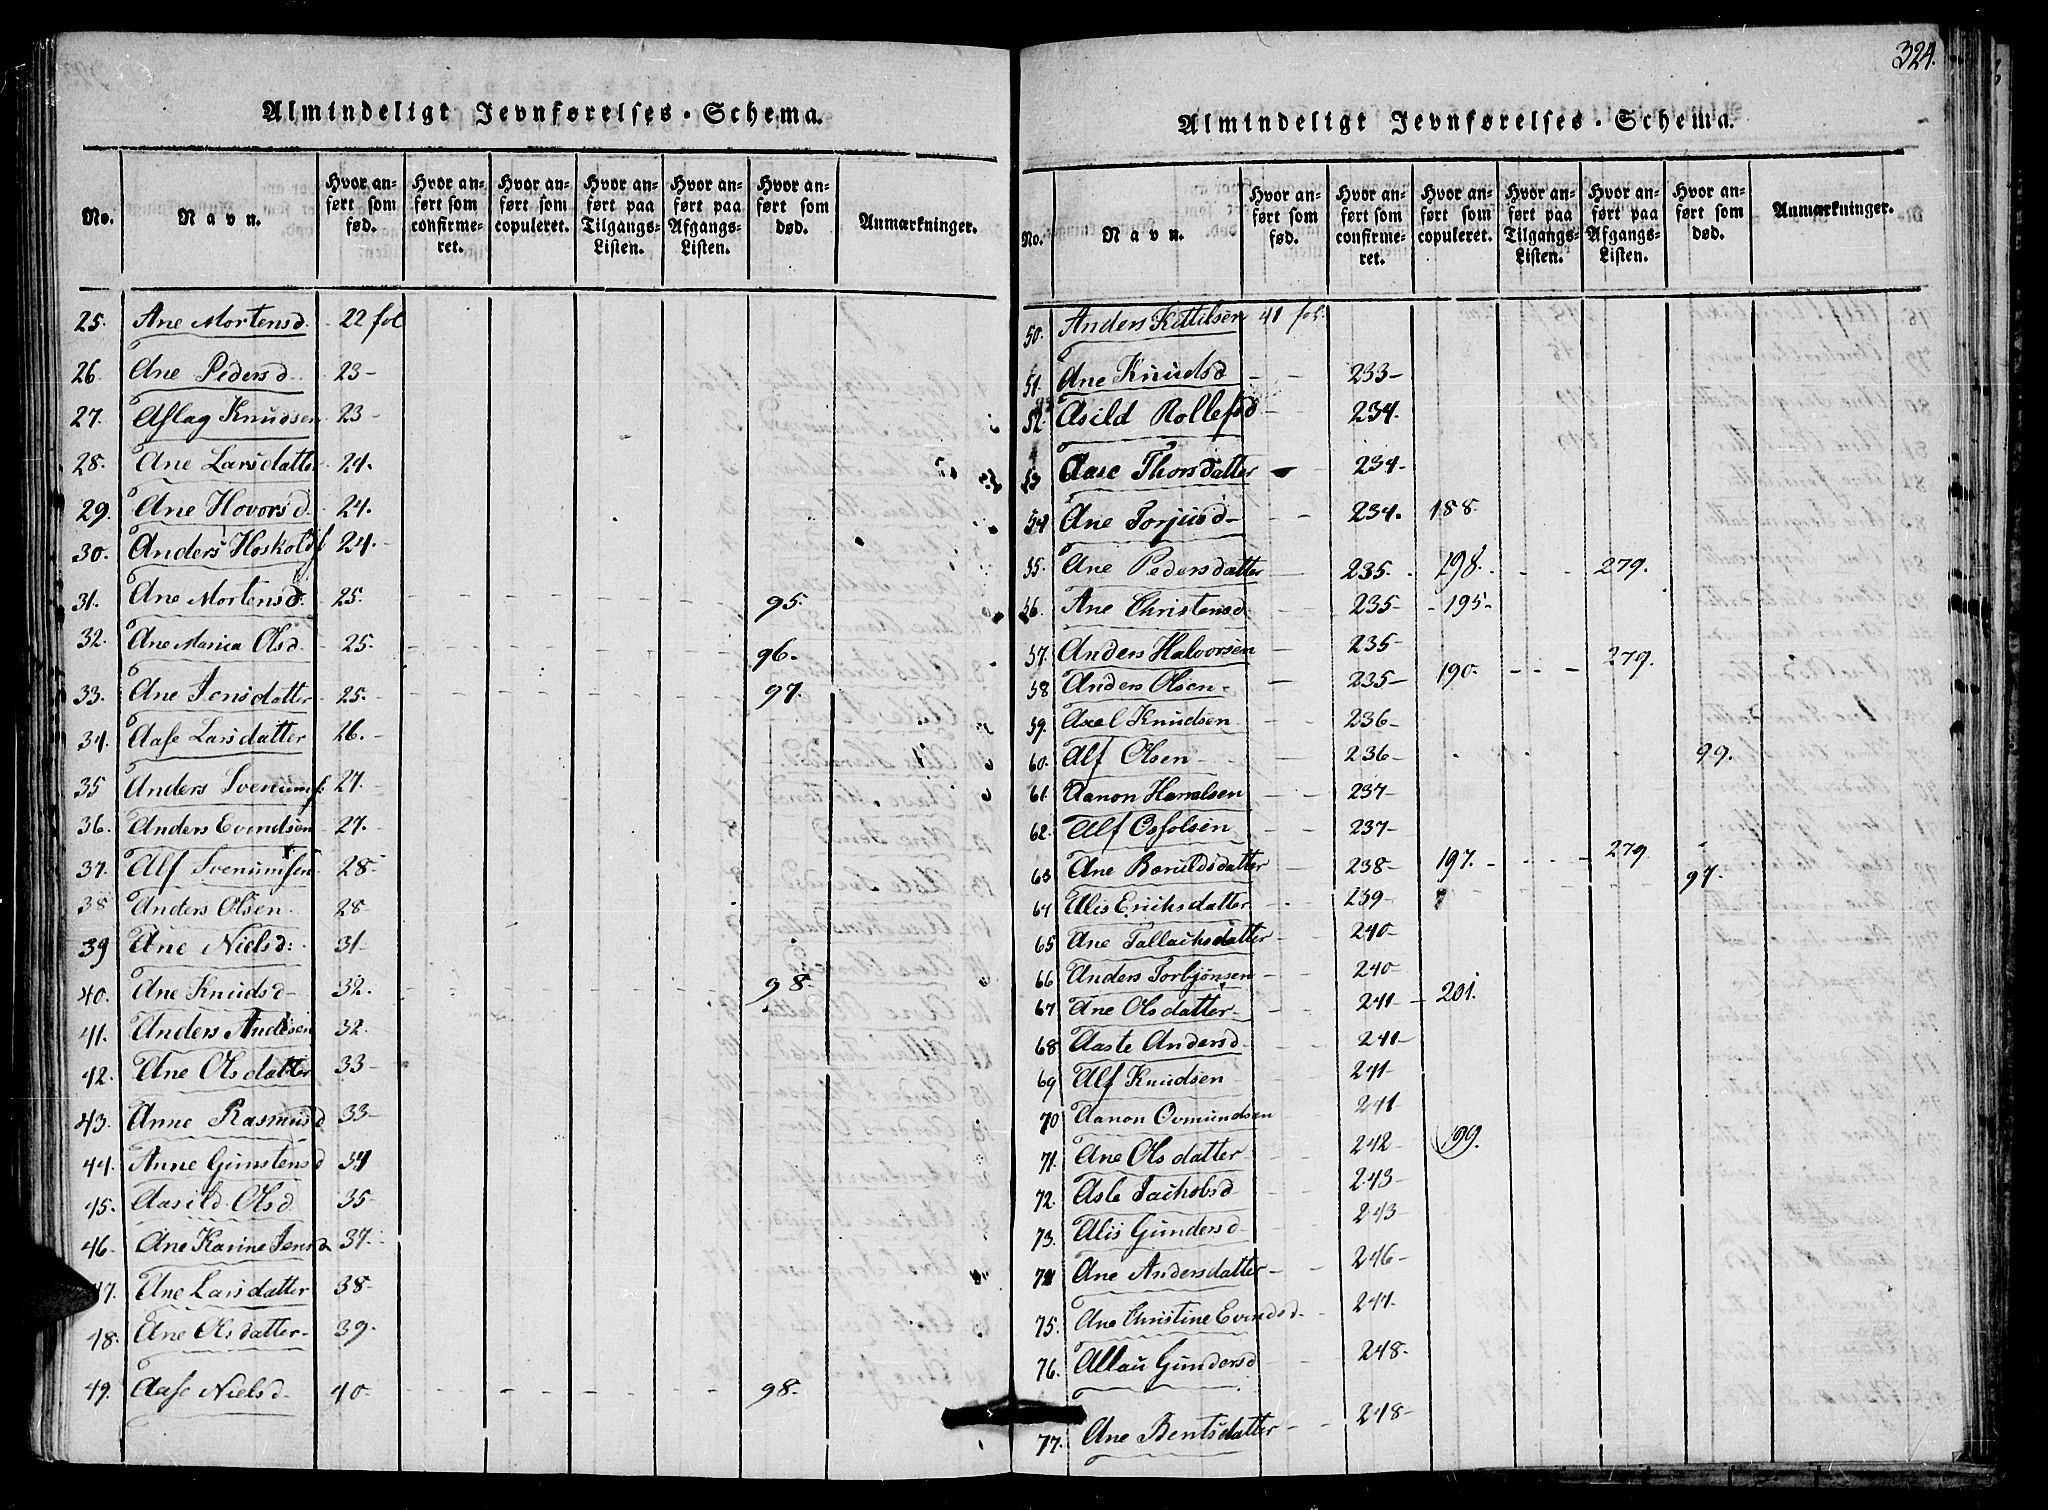 324.
Almindeligt Jevnførelses-Schema.
No. Navn. Hvor anført som fød. Hvor anført som confirmeret. Hvor anført som copuleret. Hvor anført paa Tilgangs-Listen. Hvor anført paa Afgangs-Listen. Hvor anført som død. Anmærkninger.
25. Ane Mortensd. 22 fol
26. Ane Pedersd 23-
27. Aslag Knudsen 23
28. Ane Larsdatter 24.
29. Ane Hovorsd. 24.
30. Anders Hoskolds 24.
31. Ane Mortensd. 25. 95.
32. Ane Maria Olsd. 25. 96.
33. Ane Jensdatter 25. 97.
34. Aase Larsdatter 26.
35 Anders Svenums: 27.
36. Anders Evendsen 27.
37. Alf Svenumsen 28-
38 Anders Olsen 28
39 Ane Nielsd: 31-
40. Ane Knudsd- 32. 98.
41. Anders Andersen 32.
42. Ane Olsdatter 33-
43. Anne Rasmusd 33-
44. Anne Gunstensd 34
45. Aasild Olsd 35
46. Ane Karine Jensd 37.
47. Ane Larsdatter 38-
48. Ane Olsdatter- 39.
49. Aase Nielsd. 40 98.
Almindeligt Jevnførelses-Schema.
No. Navn. Hvor anført som fød. Hvor anført som confirmeret. Hvor anført som copuleret. Hvor anført paa Tilgangs-Listen. Hvor anført paa Afgangs-Listen. Hvor anført som død. Anmærkninger.
50. Anders Kittilsen 41 fol.
51. Ane Knudsd 233-
52. Asild Rollefsd 234.
53 Aase Thorsdatter 234-
54 Ane Torjusd- 234. 188
55. Ane Pedersdatter 235. 198. 279.
56. Ane Christensd 235- 195-
57. Anders Halvorsen 235-
58 Anders Olsen- 235- 190. 279.
59. Axel Knudsen 236-
60. Alf Olsen 236- 99.
61. Aanon Haralsen 237-
62. Alf Osfolsen 237-
63 Ane Boruldsdatter 238- 197. 279
64 Alis Eriksdatter 239- 97.
65 Ane Tallachsdatter 240-
66 Anders Torbjönsen 240-
67 Ane Olsdatter- 241- 201.
68 Aaste Andersd 241-
69 Alf Knudsen 241-
70 Aanon Ovmundsen 241-
71. Ane Olsdatter 242- 199.
72. Asle Jachobsd 243-
73. Alis Gundersd 243-
74 Ane Andersdatter 246-
75. Ane Christine Evendsd. 247-
76. Allau Gundersd 248-
77. Ane Bentsdatter 248-